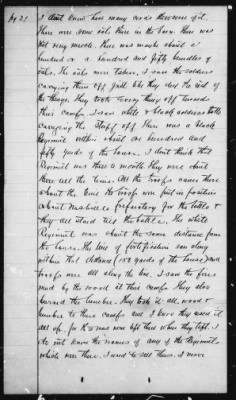 pg 21
I don't know how many cords there were of it.
There were some oats there in the barn. There was
not very much. There was maybe about a
hundred or a hundred and fifty bundles of
oats. The oats were taken, I saw the soldiers
carrying them off just like they did the rest of
the things, they took every thing off toward
their camps. I saw white & black soldiers both
carrying the stuff off. There was a black
Regiment within about one hundred and
fifty yards of the house. I don't think this
Regiment was there a month. They were about
there all the time. All the troops came there
about the time the troops were put in position
about Nashville preparatory for the battle &
they all staid till the battle. The white
Regiment was about the same distance from
the house. The line of fortifications ran along
within that distance (150 yards of the house) and
troops were all along the line. I saw the fires
made by the wood at their camps. They also
burned the lumber. They took it all, wood &
lumber to their camps and I know they used it
all up, for there was none left there when they left. I
do not know the names of any of the Regiments
which were there. I used to sell them. I never